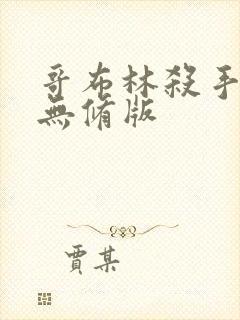 哥布林殺手
無脩版
賈某